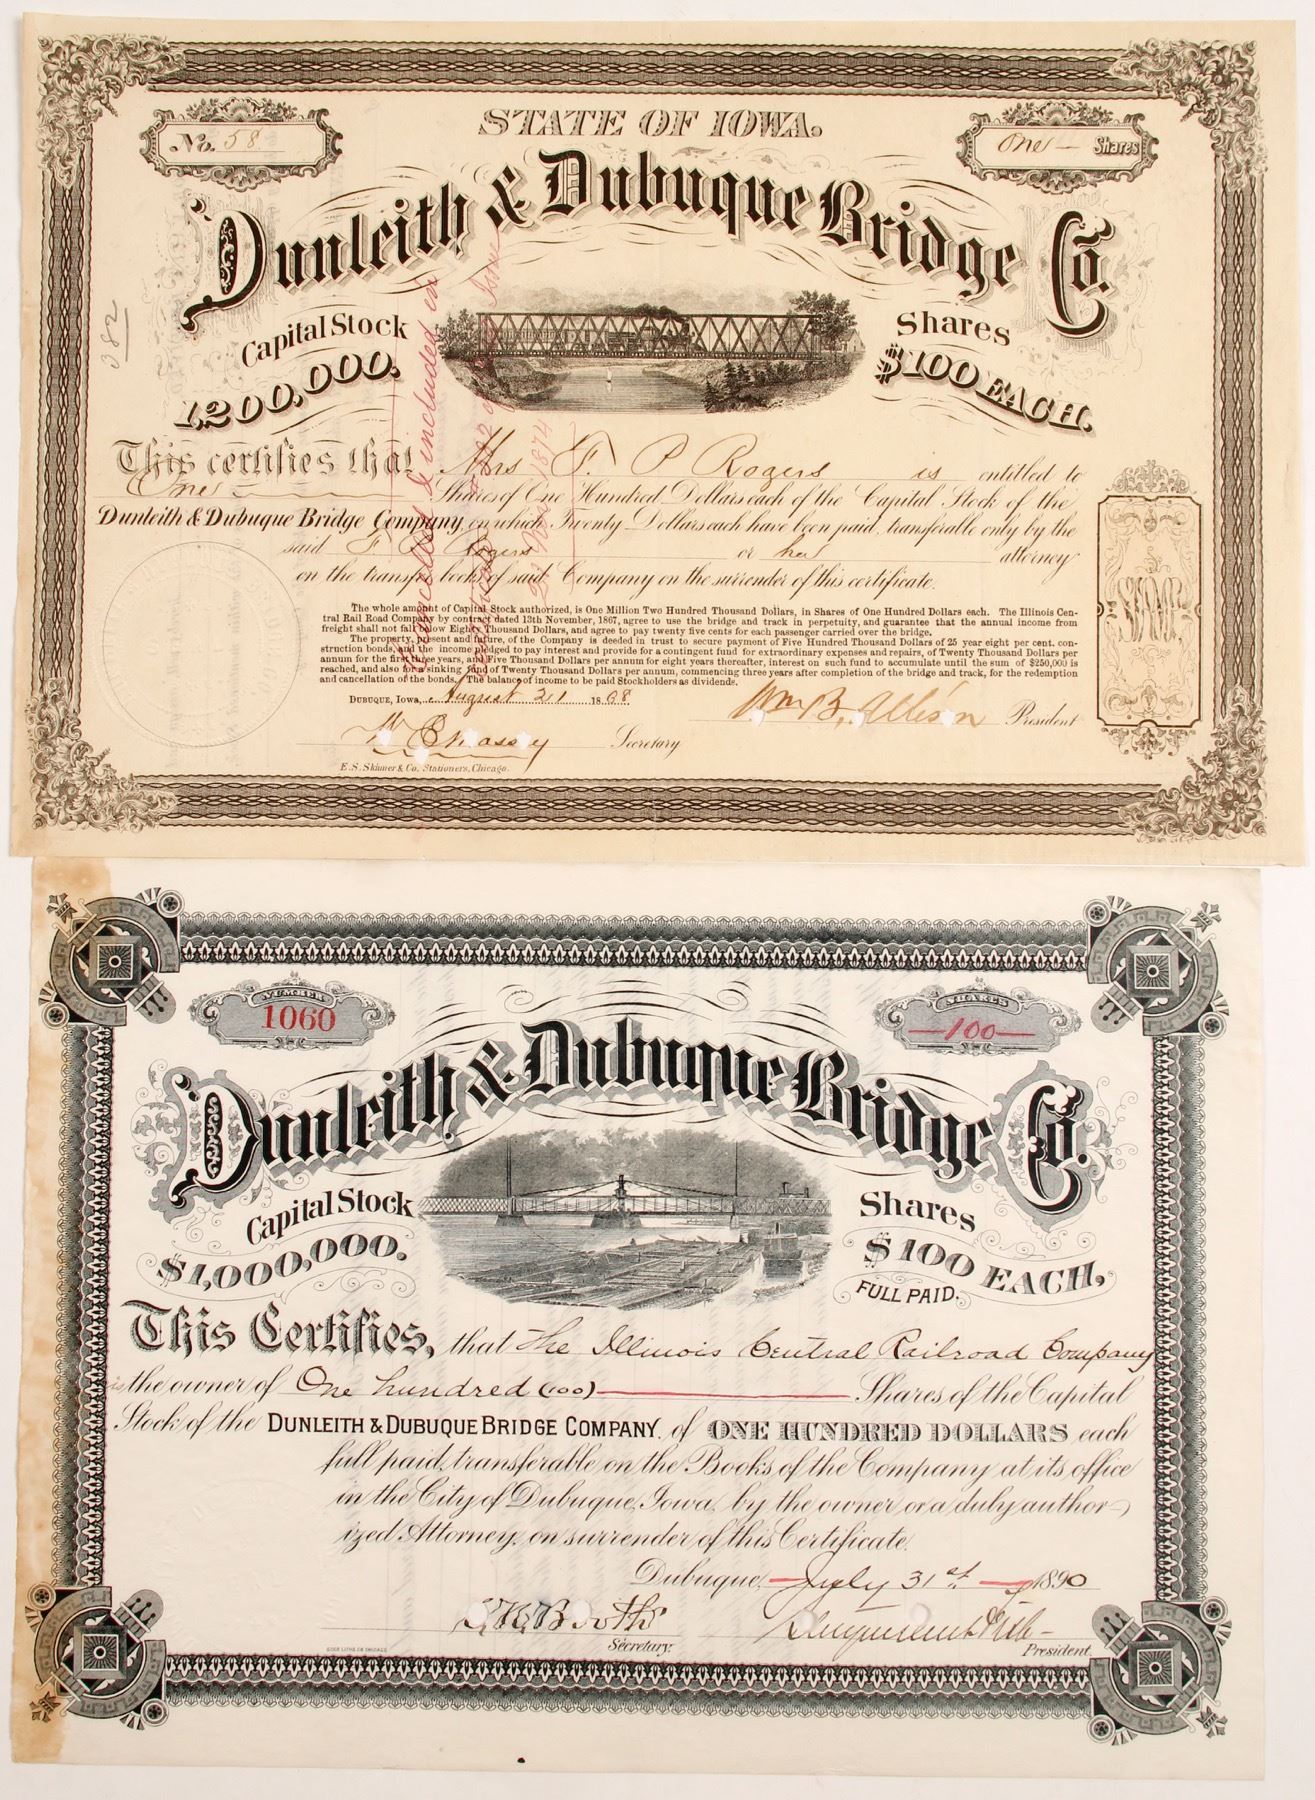 No. 58
STATE OF IOWA.
One Shares
Dunleith & Dubuque Bridge Co.
382
Capital Stock
1,200,000.
Shares
$100 EACH.
This certifies that Mrs F. P. Rogers is entitled to
One Shares of One Hundred Dollars each of the Capital Stock of the
Dunleith & Dubuque Bridge Company, on which Twenty Dollars each have been paid, transferable only by the
said F. P. Rogers or her attorney
on the transfer books of said Company on the surrender of this certificate.
Cancelled & included in
21 Nov 1874
The whole amount of Capital Stock authorized, is One Million Two Hundred Thousand Dollars, in Shares of One Hundred Dollars each. The Illinois Cen-
tral Rail Road Company by contract dated 13th November, 1867, agree to use the bridge and track in perpetuity, and guarantee that the annual income from
freight shall not fall below Eighty Thousand Dollars, and agree to pay twenty five cents for each passenger carried over the bridge.
The property, present and future, of the Company is deeded in trust to secure payment of Five Hundred Thousand Dollars of 25 year eight per cent. con-
struction bonds, and the income pledged to pay interest and provide for a contingent fund for extraordinary expenses and repairs, of Twenty Thousand Dollars per
annum for the first three years, and Five Thousand Dollars per annum for eight years thereafter, interest on such fund to accumulate until the sum of $250,000 is
reached, and also for a sinking fund of Twenty Thousand Dollars per annum, commencing three years after completion of the bridge and track, for the redemption
and cancellation of the bonds. The balance of income to be paid Stockholders as dividends.
DUBUQUE, IOWA, August 21 1868
Wm B. Allison President
Secretary
E. S. Skinner & Co. Stationers, Chicago.
NUMBER
1060
SHARES
100
Dunleith & Dubuque Bridge Co.
Capital Stock
$1,000,000.
Shares
$100 EACH,
FULL PAID.
This Certifies, that The Illinois Central Railroad Company
is the owner of One hundred (100) Shares of the Capital
Stock of the DUNLEITH & DUBUQUE BRIDGE COMPANY, of ONE HUNDRED DOLLARS each
full paid, transferable on the Books of the Company at its office
in the City of Dubuque, Iowa, by the owner or a duly author-
ized Attorney, on surrender of this Certificate.
Dubuque, July 31st 1890
Secretary.
President.